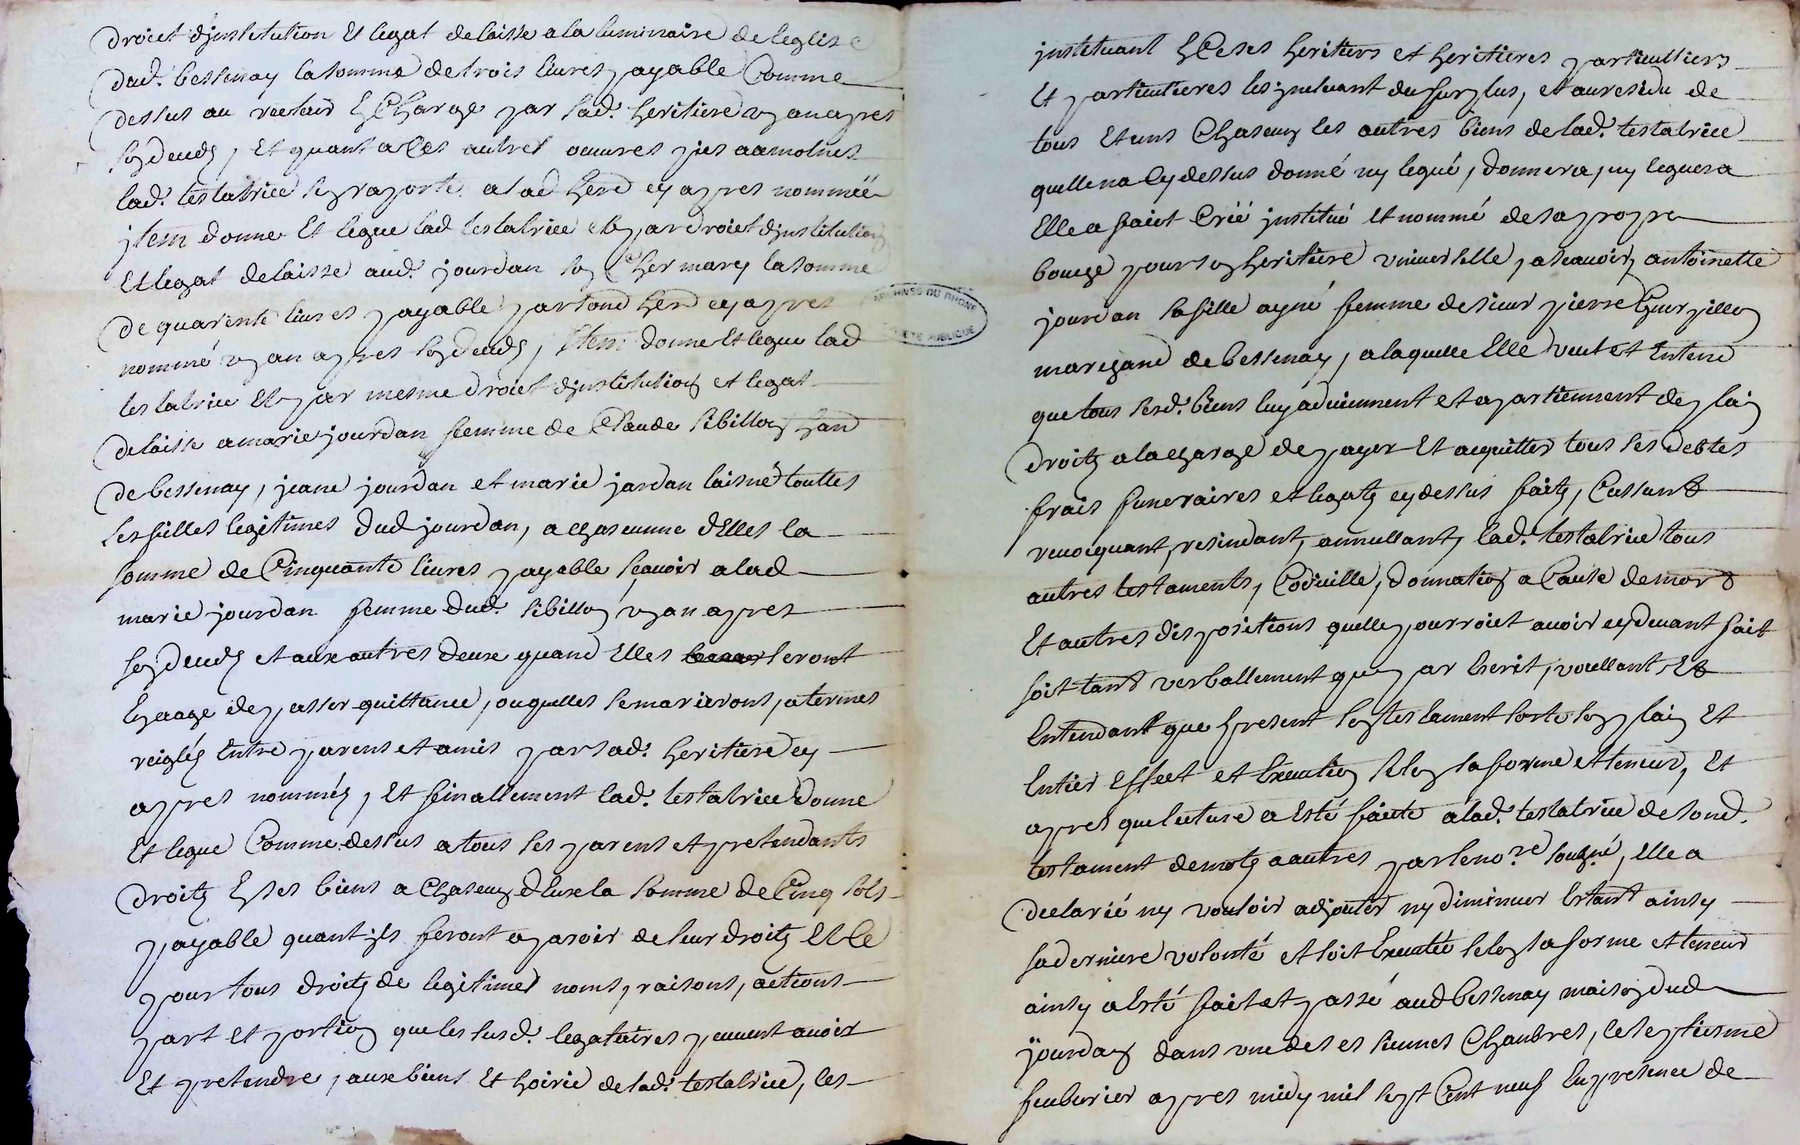 droict d'institution Et legat delaisse a la luminaire de leglize
dud. bessenay la somme de trois livres payable Comme
dessus au recteur En Charge par sad. heritiere un an apres
son deces, Et quant a Ces autres oeuvres pies aamolnes
lad. testatrice sen raporte a lad here cy apres nommée
jtem donne Et legue lad testatrice et par droict d'institution
Et legat delaisse aud. jourdan son Cher mary la somme
de quarente livres payable par sond here cy apres
nommé un an apres son deces, jtem donne Et legue lad
testatrice Et par mesme droict d'institution et legat
delaisse a marie jourdan femme de Claude sibillon
de bessenay, jeane jourdan et marie jordan laisné touttes
ses filles legitimes dud jourdan, a chascunne d'Elles la
somme de Cinquante livres payable sçavoir a lad
marie jourdan femme dud. sibillon un an apres
son deces et aux autres deux quand Elles seront
En aage de passer quittance, ou quelles se marieront, a termes
reiglés Entre parens et amis par sad. heritiere cy
apres nommés, Et finallement lad. testatrice donne
Et legue Comme dessus a tous ses parens et pretendants
droitz En ses biens a Chascun d'Eux la somme de Cinq sols
payable quant ils feront aparoir de leur droitz Et Ce
pour tous droitz de legitimes noms, raisons, actions
part et portion que les susd. legataires peuvent avoir
Et pretendre, aux biens Et hoirie de lad. testatrice, les
instituant En Ce ses heritiers et heritieres particulliers
Et particulieres les jncluant du surplus, et au residu de
tous Et uns Chascung les autres biens de lad. testatrice
quelle na Cy dessus donné ny legué, donnera, ny leguera
Elle a faict Créé institué Et nommé de sa propre
bouche pour son heritiere universelle, a scavoir, antoinette
jourdan sa fille ayné femme de sieur pierre Gurpillon
marchand de bessenay, a laquelle Elle veut et Entend
que tous sesd. biens luy adviennent et apartiennent de plain
droitz a la charge de payer Et acquitter tous ses debtes
frais funeraires et legatz cy dessus faitz, Cassant
revocquant, resindant, annullant, lad. testatrice tous
autres testaments, Codicille, donnation a Cause de mort
Et autres dispositions quelle pourroict avoir cy devant fait
soit tant verballement que par Escrit, voullant Et
Entendant que le present son testament sorte son plain Et
Entier Effect et Execution selon sa forme et teneur, Et
apres que lecture a Esté faicte a lad. testatrice de sond.
testament de motz a autres par le no.re soubz.né, Elle a
declaré ny vouloir adjouter ny diminuer Estant ainsy
sa derniere volonté et soit Executée selon sa forme et teneur
ainsy a Esté fait et passé aud bessenay maison dud
jourdan dans une de ses siennes Chambres, le septiesme
feubvrier apres midy mil sept Cent neuf En presence de
ARCHIVES DU RHONE